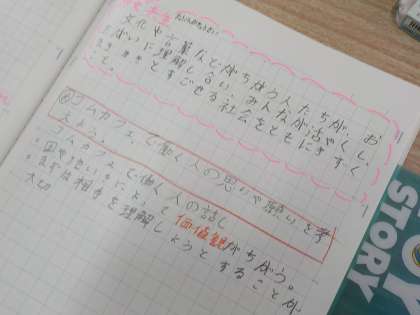 文化や言葉などがちがう人たちが、お
たがいに理解し合い、みんなが活やくし、
生き生きとすごせる社会をともにきずく
こと。
め ゴムカフェで働く人の思いや願いを考
えよう。
ゴムカフェで働く人の話し
・国や思いなどによって価値観がちがう。
・まずは相手を理解しようとすることが
大切
STORY